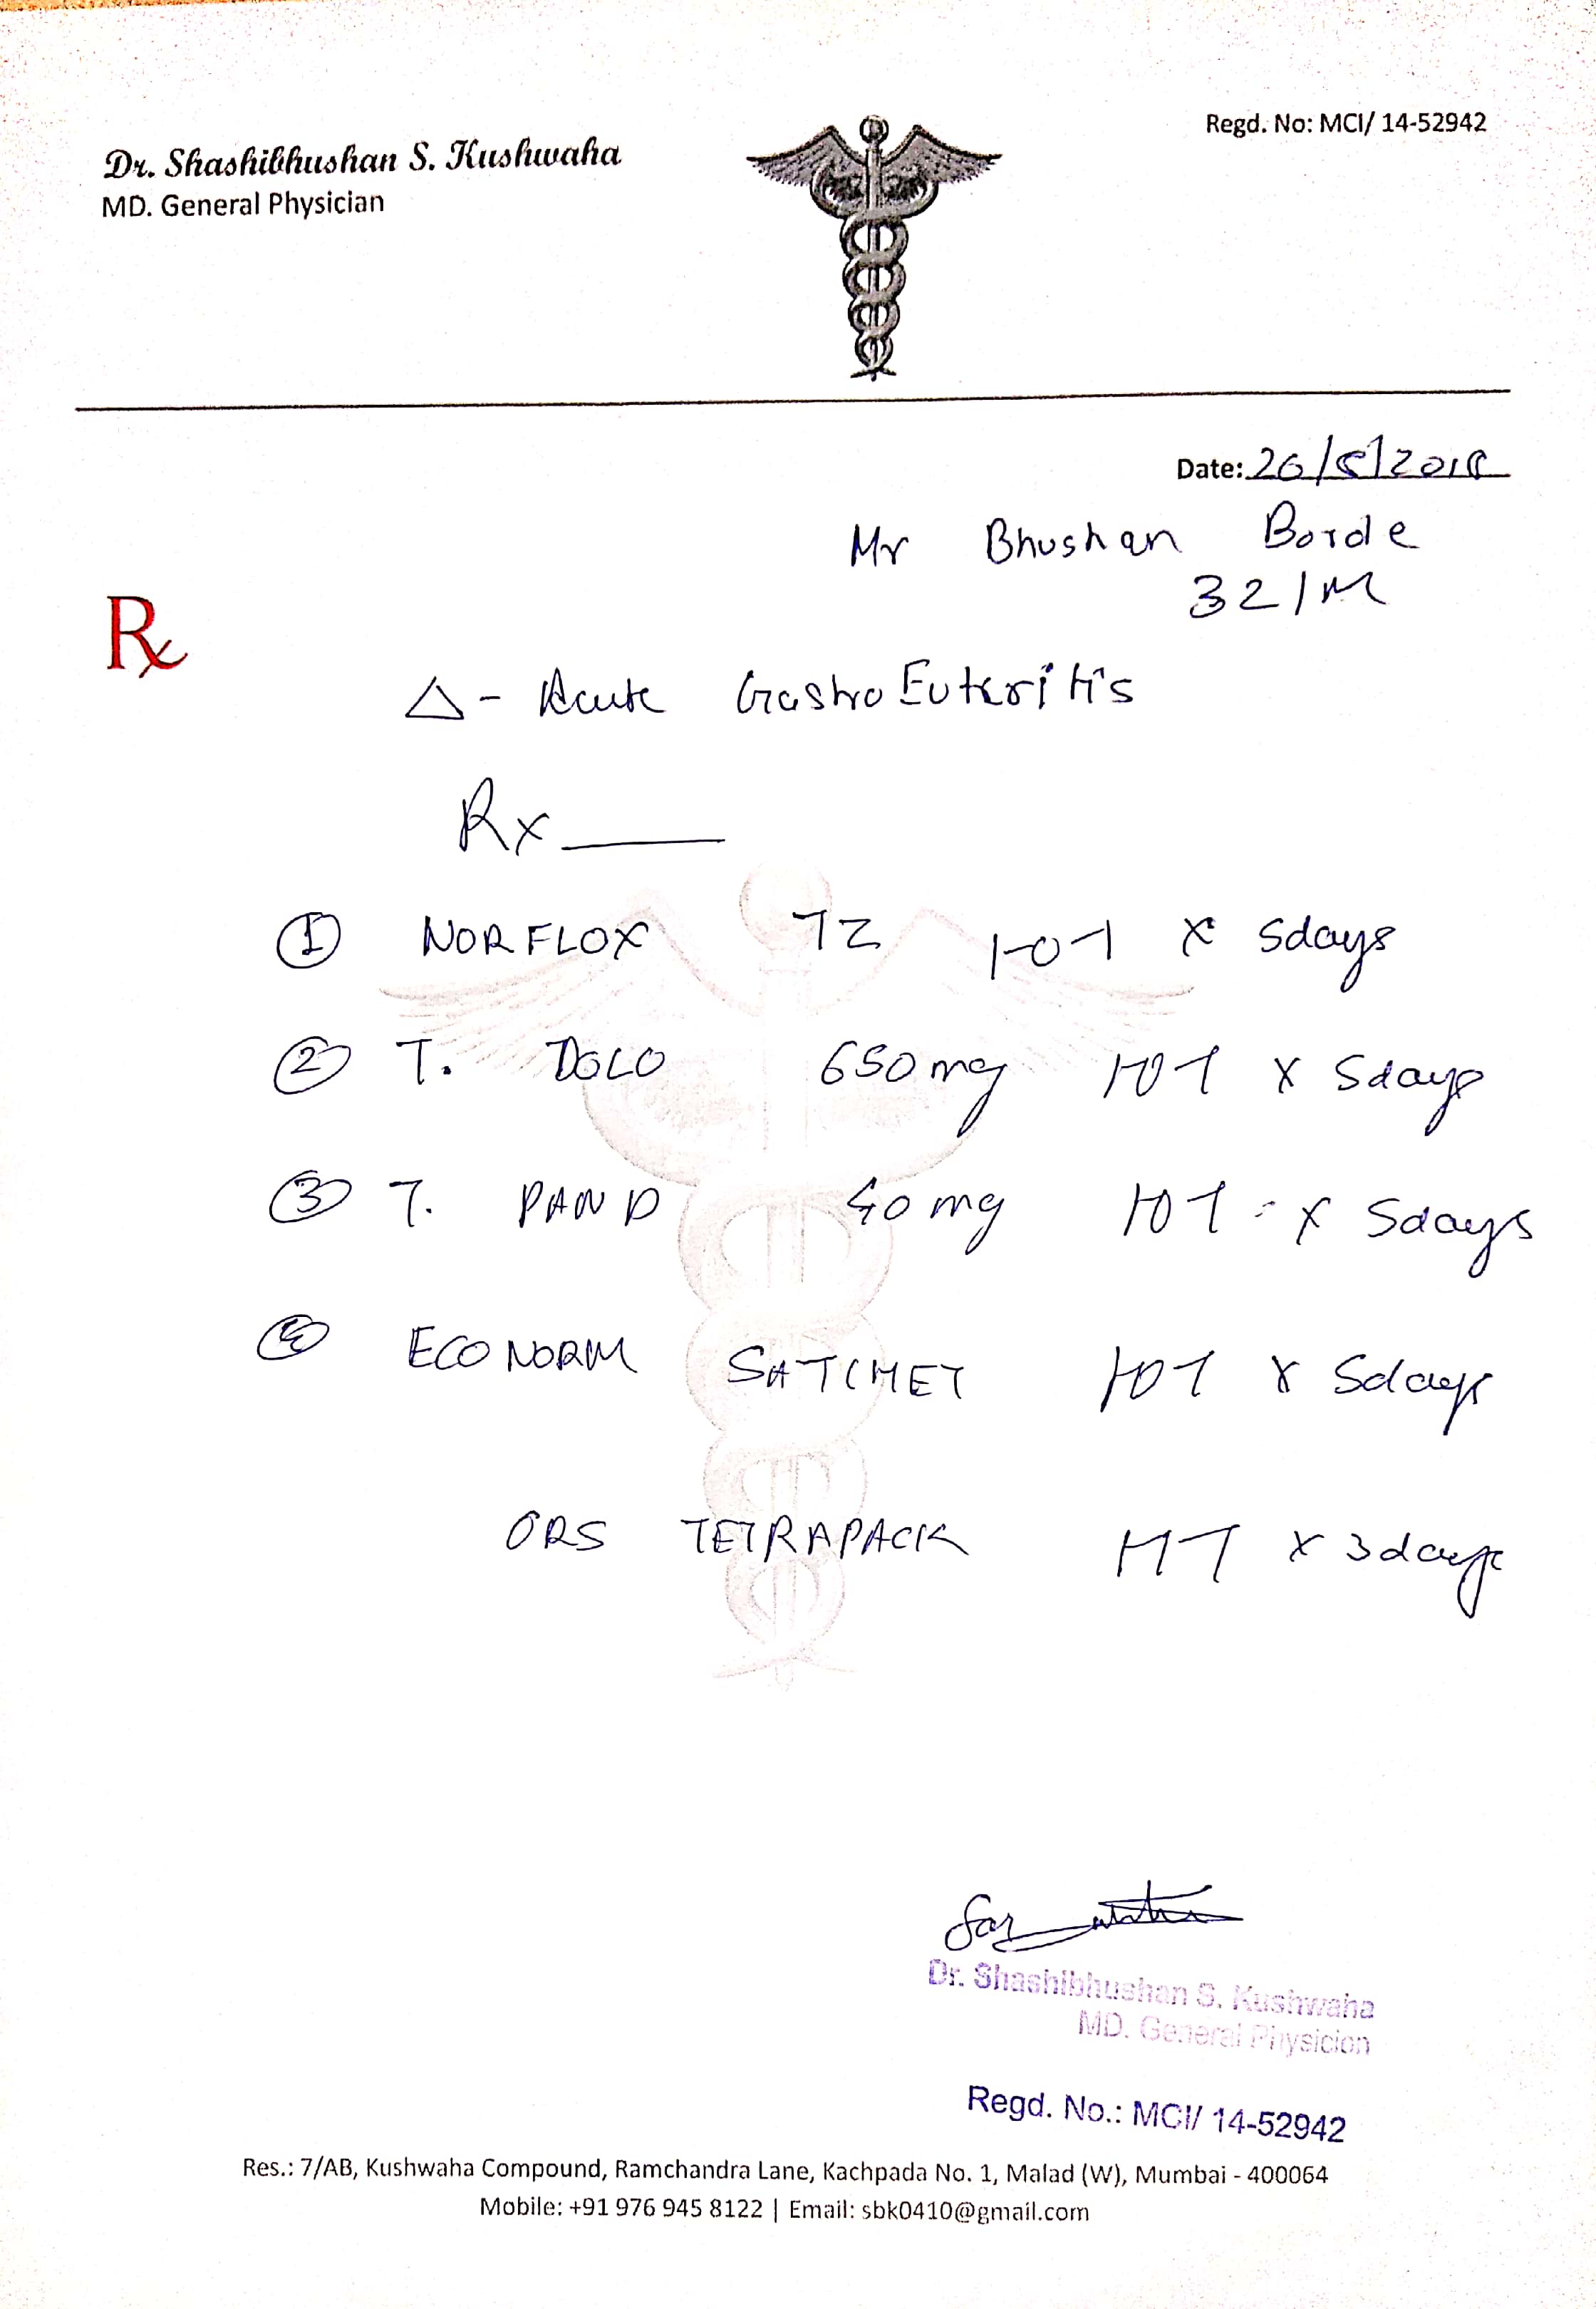 Regd. No: MCI/ 14-52942
Dr. Shashibhushan S. Kushwaha
MD. General Physician
Date: 26/
Mr Bhushan Borde
32/M
R
△ - Acute GastroEuteritis
Rx
① NORFLOX TZ 1-0-1 x 5days
② T. DOLO 650mg 101 x 5days
③ T. PAN D 40mg 101 - x 5days
④ ECONORM SATCHET 101 x 5days
ORS TETRAPACK x 3days
Dr. Shashibhushan S. Kushwaha
MD. General Physicion
Regd. No.: MCI/ 14-52942
Res.: 7/AB, Kushwaha Compound, Ramchandra Lane, Kachpada No. 1, Malad (W), Mumbai - 400064
Mobile: +91 976 945 8122 | Email: sbk0410@gmail.com